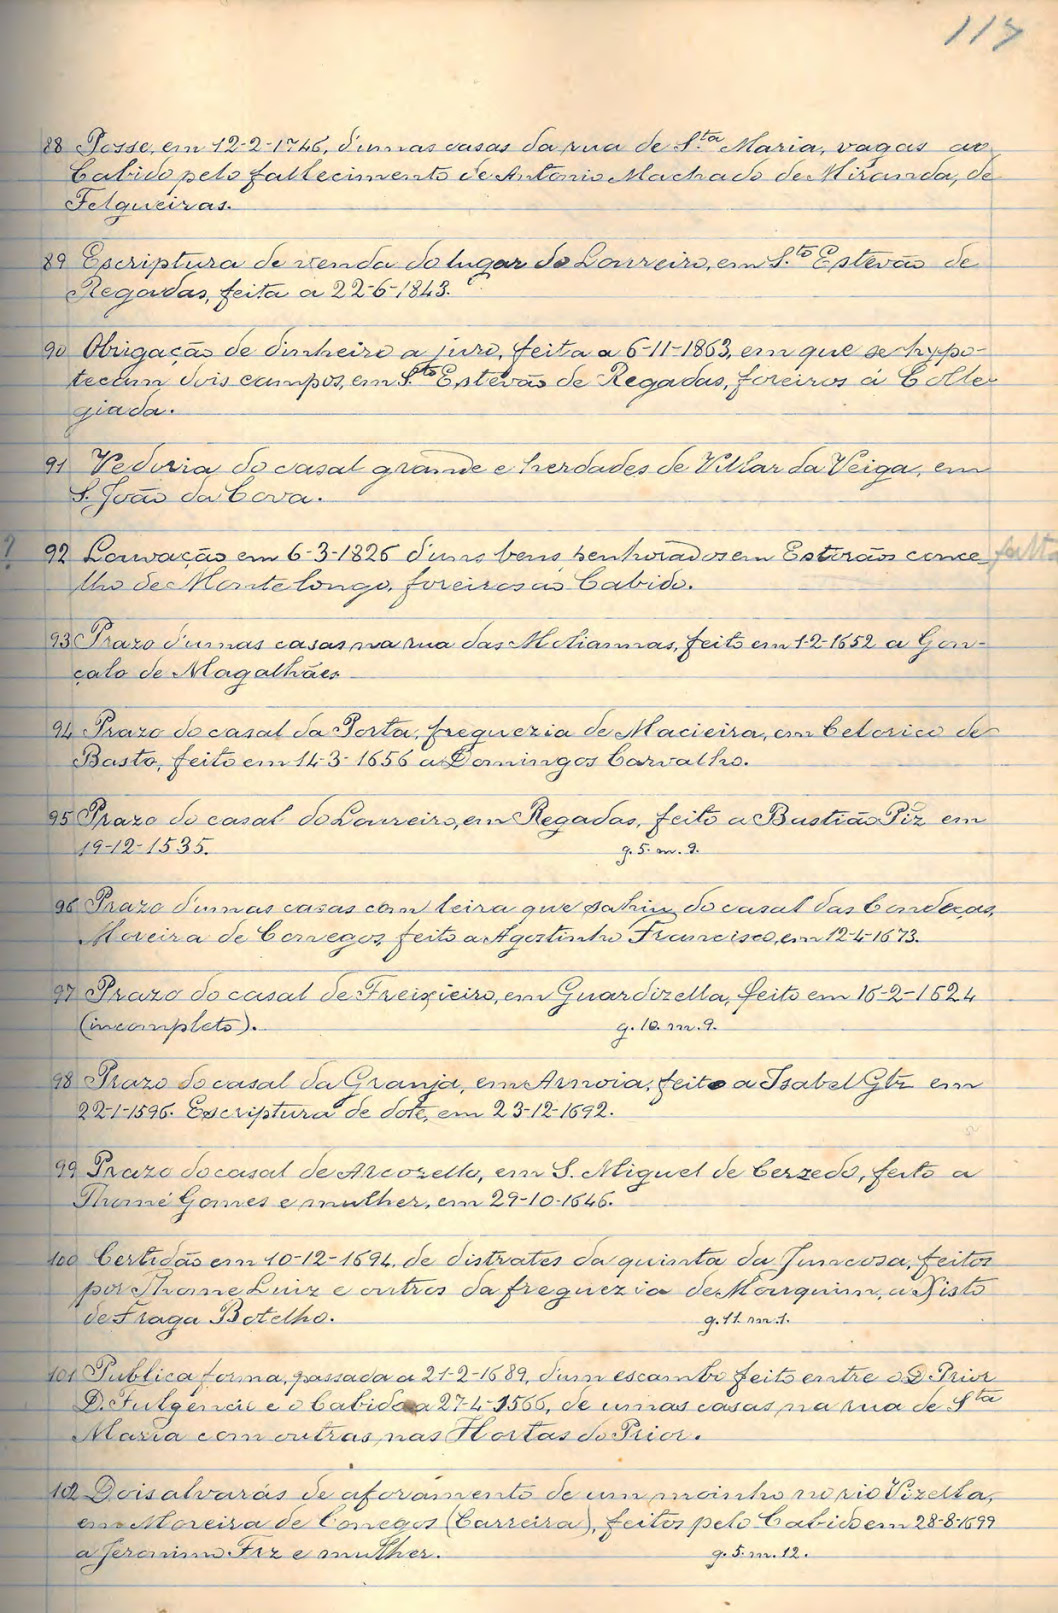 117
88 Posse, em 12-2-1746, d'umas casas da rua de S.ta Maria, vagas ao
Cabido pelo fallecimento de Antonio Machado de Miranda, de
Felgueiras.
89 Escriptura de venda do lugar do Loureiro, em S.to Estevão de
Regadas, feita a 22-6-1843.
90 Obrigação de dinheiro a juro, feita a 6-11-1863, em que se hypo-
tecam dois campos, em S.to Estevão de Regadas, foreiros á Colle-
giada.
91 Vedoria do casal grande e herdades de Villar da Veiga, em
S. João da Cova.
? 92 Louvação em 6-3-1826 d'uns bens penhorados em Estorãos conce- falta
lho de Monte longo, foreiros ao Cabido.
93 Prazo d'umas casas na rua das Moliannas, feito em 1-2-1652 a Gon-
çalo de Magalhães
94 Prazo do casal da Porta, freguezia de Macieira, em Celorico de
Basto, feito em 14-3-1656 a Domingos Carvalho.
95 Prazo do casal do Loureiro, em Regadas, feito a Bastião Piz em
19-12-1535. g. 5. m. 9.
96 Prazo d'umas casas com leira que sahiu do casal das Condeças,
Moreira de Conegos, feito a Agostinho Francisco, em 12-4-1673.
97 Prazo do casal de Freixieiro, em Guardizella, feito em 16-2-1524
(incompleto). g. 10. m. 9.
98 Prazo do casal da Granja, em Arnoia, feito a Isabel Glz em
22-1-1596. Escriptura de dote, em 23-12-1692.
99 Prazo do casal de Arcozello, em S. Miguel de Cerzedo, feito a
Thomé Gomes e mulher, em 29-10-1646.
100 Certidão em 10-12-1694, de distrates da quinta da Juncosa, feitos
por Thome Luiz e outros da freguezia de Mouquim, a Xisto
de Fraga Botelho. g. 11. m. 1.
101 Publica forma, passada a 21-2-1689, d'um escambo feito entre o D. Prior
D. Fulgencio e o Cabido a 27-4-1566, de umas casas na rua de S.ta
Maria com outras nas Hortas do Prior.
102 Dois alvarás de aforamento de um moinho no rio Vizella,
em Moreira de Conegos (Carreira), feitos pelo Cabido em 28-8-1699
a Jeronimo Frz e mulher. g. 5. m. 12.